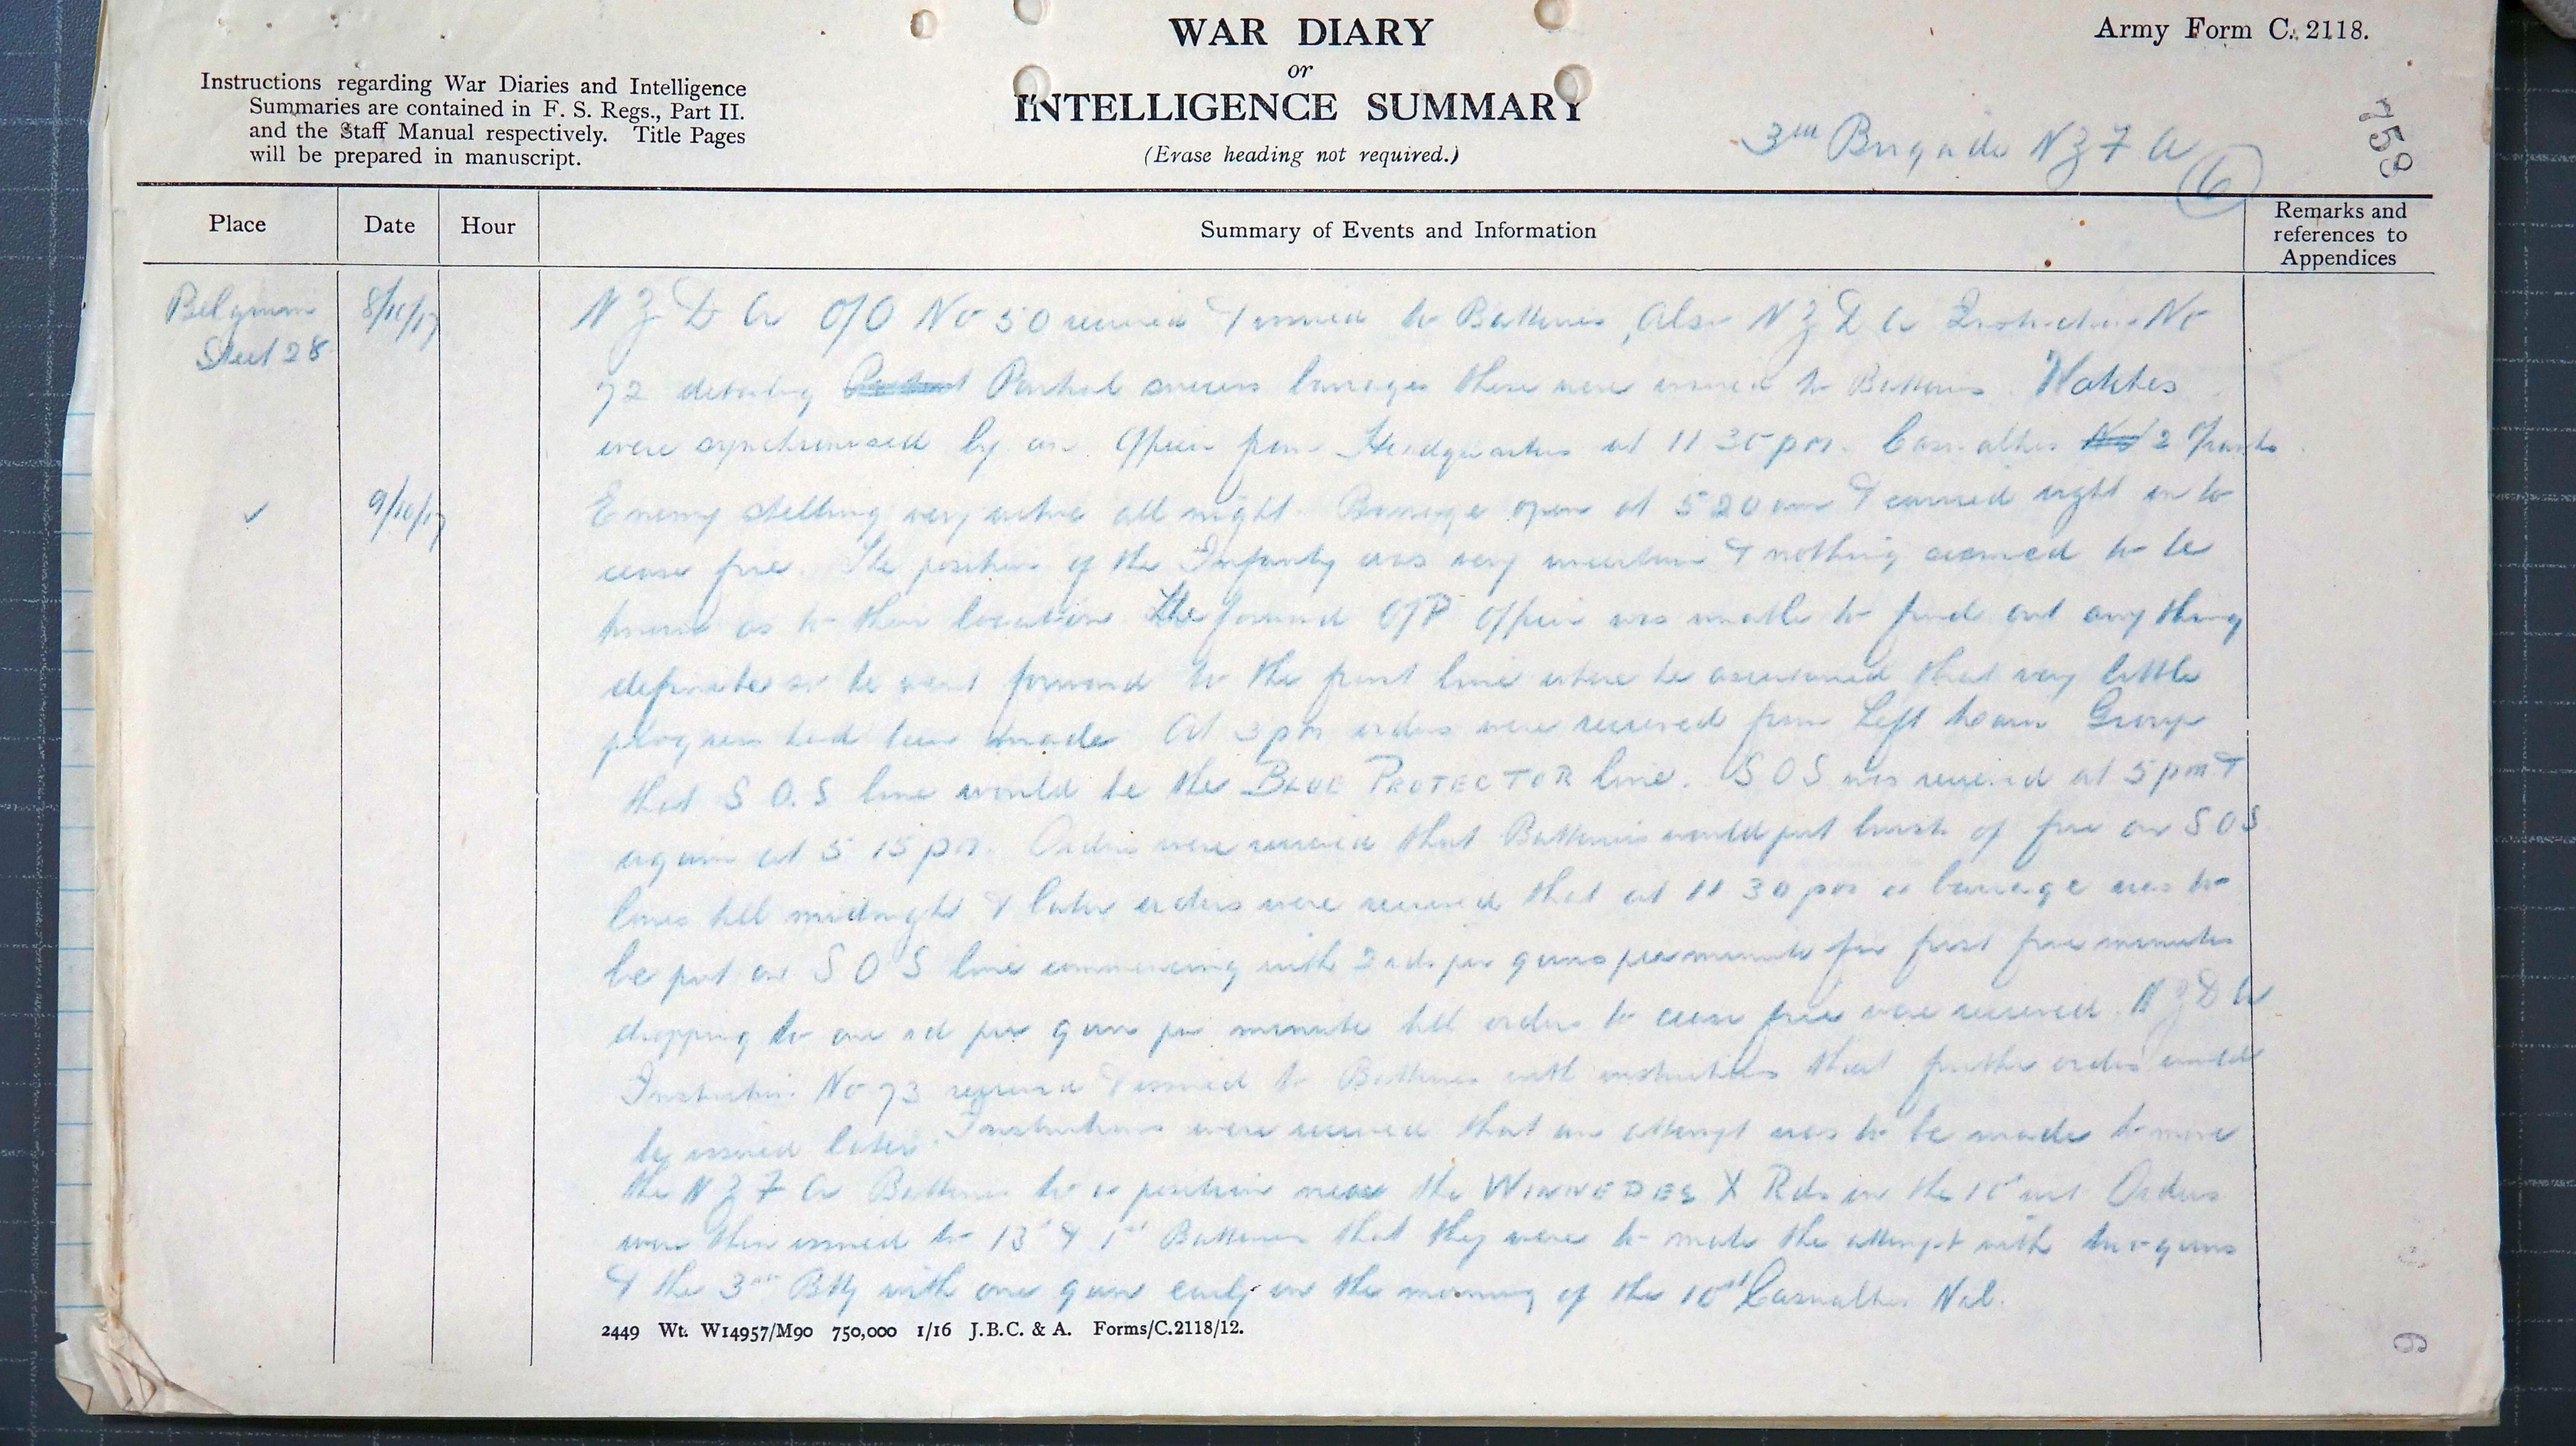 WAR DIARY
or
INTELLIGENCE SUMMARY
(Erase heading not required.)
Army Form C. 2118.
Instructions regarding War Diaries and Intelligence
Summaries are contained in F. S. Regs., Part II.
and the Staff Manual respectively. Title Pages
will be prepared in manuscript.
3rd Brigade N Z F A
6
758
Place
Date
Hour
Summary of Events and Information
Remarks and
references to
Appendices
Belgium
Sheet 28
8/10/17
N Z D A O/O No 50 received & issued to Batteries, Also N Z D A Instruction No
72 detailing Partial success barrages these were issued to Batteries. Watches
were synchronised by an Officer from Headquarters at 11 30 pm. Casualties 2 O/ranks
✓
9/10/17
Enemy shelling very active all night. Barrage open at 5 20 am & carried right on to
cease fire. The position of the Infantry was very uncertain & nothing seemed to be
known as to their location. The forward O/P Officer was unable to find out anything
definite so he went forward to the front line where he ascertained that very little
progress had been made. At 3 pm orders were received from Left Group
that S.O.S line would be the BLUE PROTECTOR line. S O S was received at 5 pm &
again at 5 15 pm. Orders were received that Batteries would put bursts of fire on S O S
lines till midnight & later orders were received that at 11 30 pm a barrage was to
be put on S O S line commencing with 2 rds per guns per minute for first five minutes
dropping to one rd per gun per minute till orders to cease fire were received. N Z D A
Instruction No 73 received & issued to Batteries with instructions that further orders would
be issued later. Instructions were received that an attempt was to be made to move
the N Z F A Batteries to a position near the X Rds on the 10th inst Orders
were then issued to 13th & 1st Batteries that they were to make the attempt with two guns
& the 3rd Bty with one gun early on the morning of the 10th Casualties Nil.
2449 Wt. W14957/M90 750,000 1/16 J.B.C. & A. Forms/C.2118/12.
6